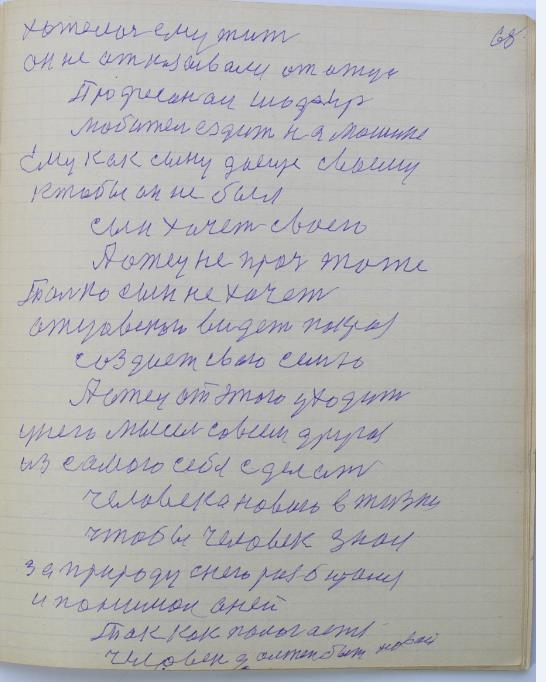 68
хотелос ему жит
он не отказывали от отца
Профисонал шофёр
любител ездит на машине
Ему как сыну даеще своему
ктобы он не был
сын хочет своего
А отец не проч тоже
Толко сын не хочет
отцовского видет
создает свою семью
А отец от этого уходит
у него мысел совсем другая
из самого себя сделат
человека нового в жизни
чтобы человек знал
за природу снею разбирался
и понимал оней
Так как пологаетс
человек должен быт новой